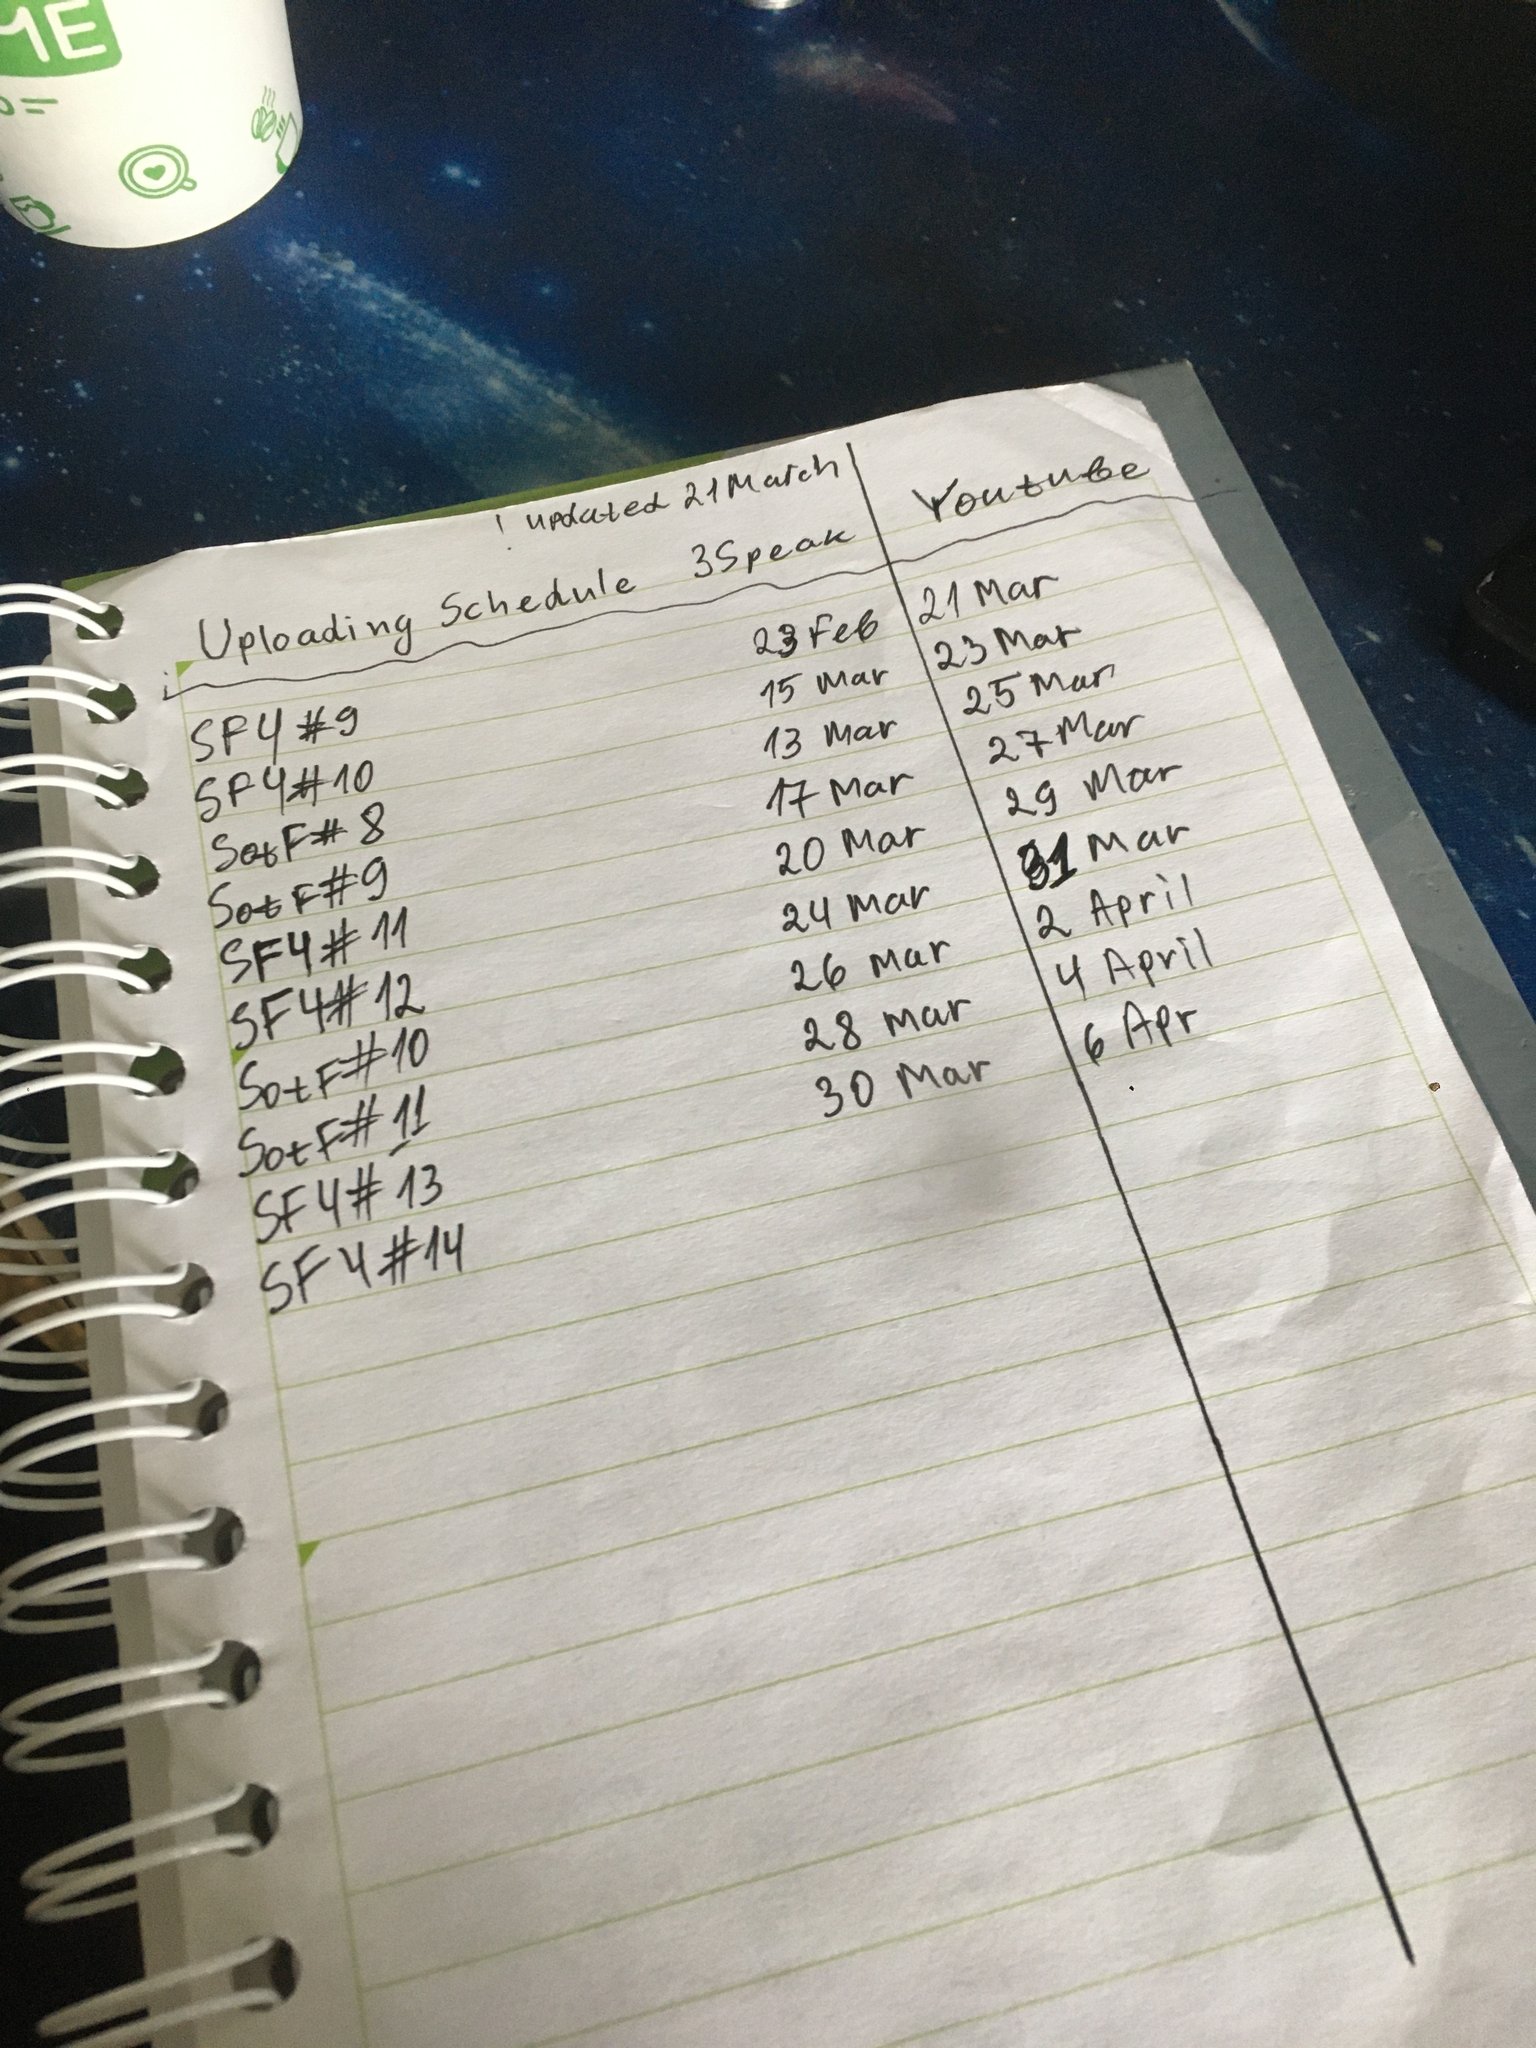 ME
! updated 21 March
Uploading Schedule 3Speak Youtube
SF4 #9 23 Feb 21 Mar
SF4 #10 15 Mar 23 Mar
SotF# 8 13 Mar 25 Mar
SotF #9 17 Mar 27 Mar
SF4 # 11 20 Mar 29 Mar
SF4# 12 24 Mar 31 Mar
SotF# 10 26 Mar 2 April
SotF# 11 28 Mar 4 April
SF4# 13 30 Mar 6 Apr
SF4 #14